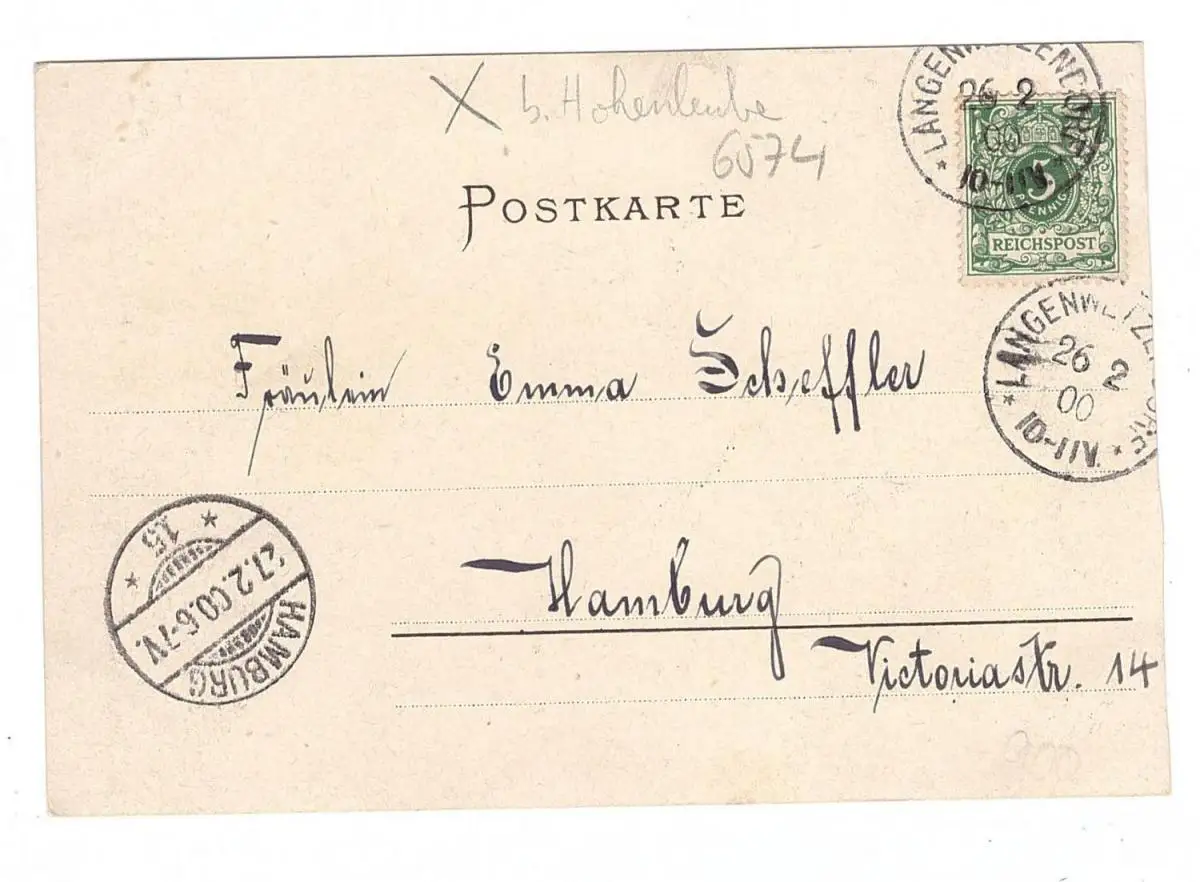 b. Hohenleube
6574
POSTKARTE
LANGENWETZENDORF
26 2
00
10-11V.
5
PFENNIG
REICHSPOST
LANGENWETZENDORF
26 2
00
10-11V.
Fräulein Emma Scheffler
Hamburg
Victoriastr. 14
HAMBURG
27.2.00.6-7V.
15